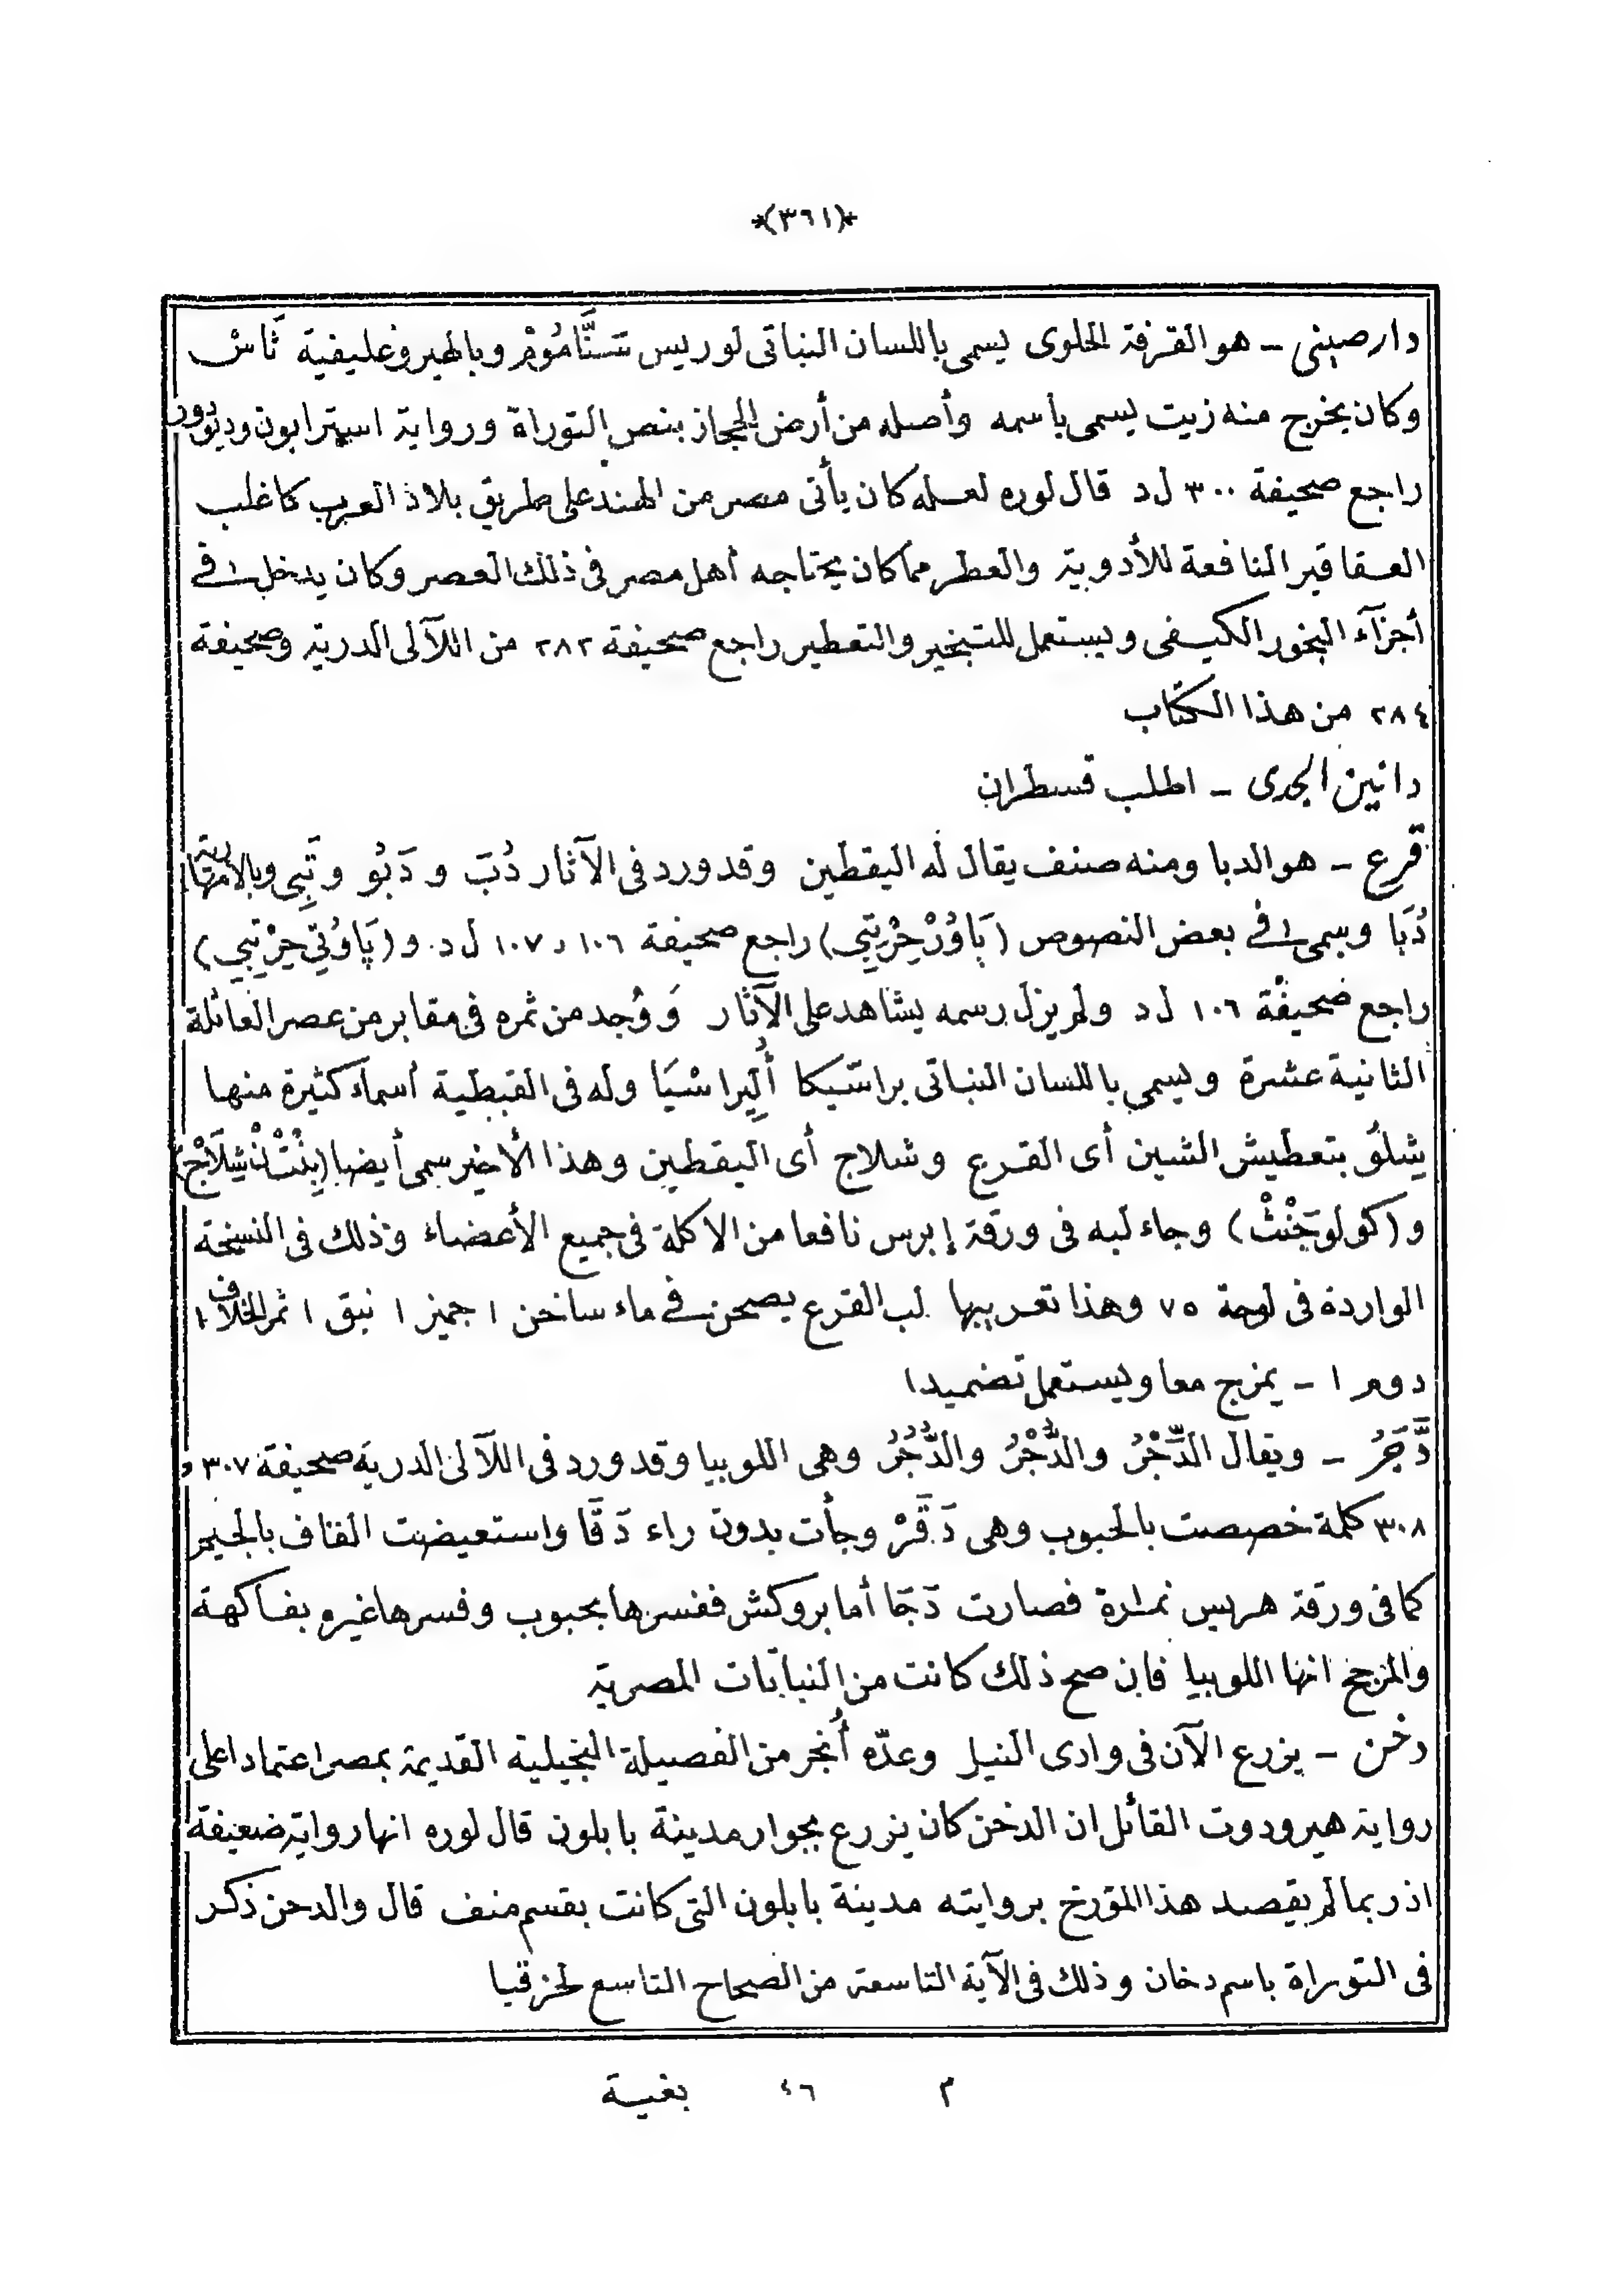 *(٣٦١)*
دار صيني ـ هو القرفة الحلوى يسمى باللسان النباتى لوريس سَنَّامُومْ وبالهيروغليفية ثَاسْ
وكان يخرج منه زيت يسمى بأسمه وأصله من أرض الحجاز بنص التوراة ورواية استرابون وديودور
راجع صحيفة ٣٠٠ ل د قال لوره لعله كان يأتى مصر من الهند على طريق بلاد العرب كاغلب
العقاقير النافعة للأدوية والعطر مما كان يحتاجه أهل مصر فى ذلك العصر وكان يدخل فى
أجزآء البخور الكيفى ويستعمل للتبخير والتعطير راجع صحيفة ٢٨٢ من اللآلى الدرية وصحيفة
٢٨٤ من هذا الكتاب
دانين الجدى ـ اطلب قسطران
قرع ـ هو الدبا ومنه صنف يقال له اليقطين وقد ورد فى الآثار دُبَ و دَبُو و تَبِى
دُبَا وسمى فى بعض النصوص (بَاوُرْخِرْتِبِى) راجع صحيفة ١٠٦ و ١٠٧ ل د. و (پَاوُتِى خِرْتِبِى)
راجع صحيفة ١٠٦ ل د ولم يزل رسمه يشاهد على الآثار وَوُجد من ثمره فى مقابر من عصر العائلة
الثانية عشرة ويسمى باللسان النباتى براسّيكا أُلِيراسْيَا وله فى القبطية أسماء كثيرة منها
شِلُو بتعطيش الشين أى القرع وشلاج أى اليقطين وهذا الأخير سمى أيضا (بِنْتْنْشِلَاجْ)
و (كولوجَنْثْ) وجاء لبه فى ورقة إبرس نافعا من الاكلة فى جميع الأعضاء وذلك فى النسخة
الواردة فى لوحة ٧٥ وهذا تعريبها لب القرع يصحن فى ماء ساخن ١ جميز ١ نبق ١ ثمر الخلاف ١
دوم ١ ـ يمزج معا ويستعمل تضميدا
دَّجَرُ ـ ويقال الدِّجْرُ والدُّجْرُ والدُّجُرُ وهى اللوبيا وقد ورد فى اللآلى الدرية صحيفة ٣٠٧ و
٣٠٨ كلمة خصصت بالحبوب وهى دَقَرْ وجأت بدون راء دَقَا واستعيضت القاف بالجيم
كما فى ورقة هريس نمرة فصارت دَجَا أما بروكش ففسرها بحبوب وفسرها غيره بفاكهة
والمرجح انها اللوبيا فان صح ذلك كانت من النباتات المصرية
دخن ـ يزرع الآن فى وادى النيل وعدّه أُنجر من الفصيلة النجيلية القديمة بمصر اعتمادا على
رواية هيرودوت القائل ان الدخن كان يزرع بجوار مدينة بابلون قال لوره انها رواية ضعيفة
اذ ربما لم يقصد هذا المؤرخ بروايته مدينة بابلون التى كانت بقسم منف قال والدخن ذكر
فى التوراة باسم دخان وذلك فى الآية التاسعة من الصحاح التاسع لحزقيا
م ٤٦ بغية